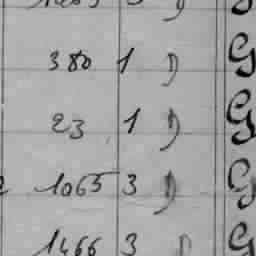 380 1 D G
23 1 D G
1065 3 D G
1466 3 D G